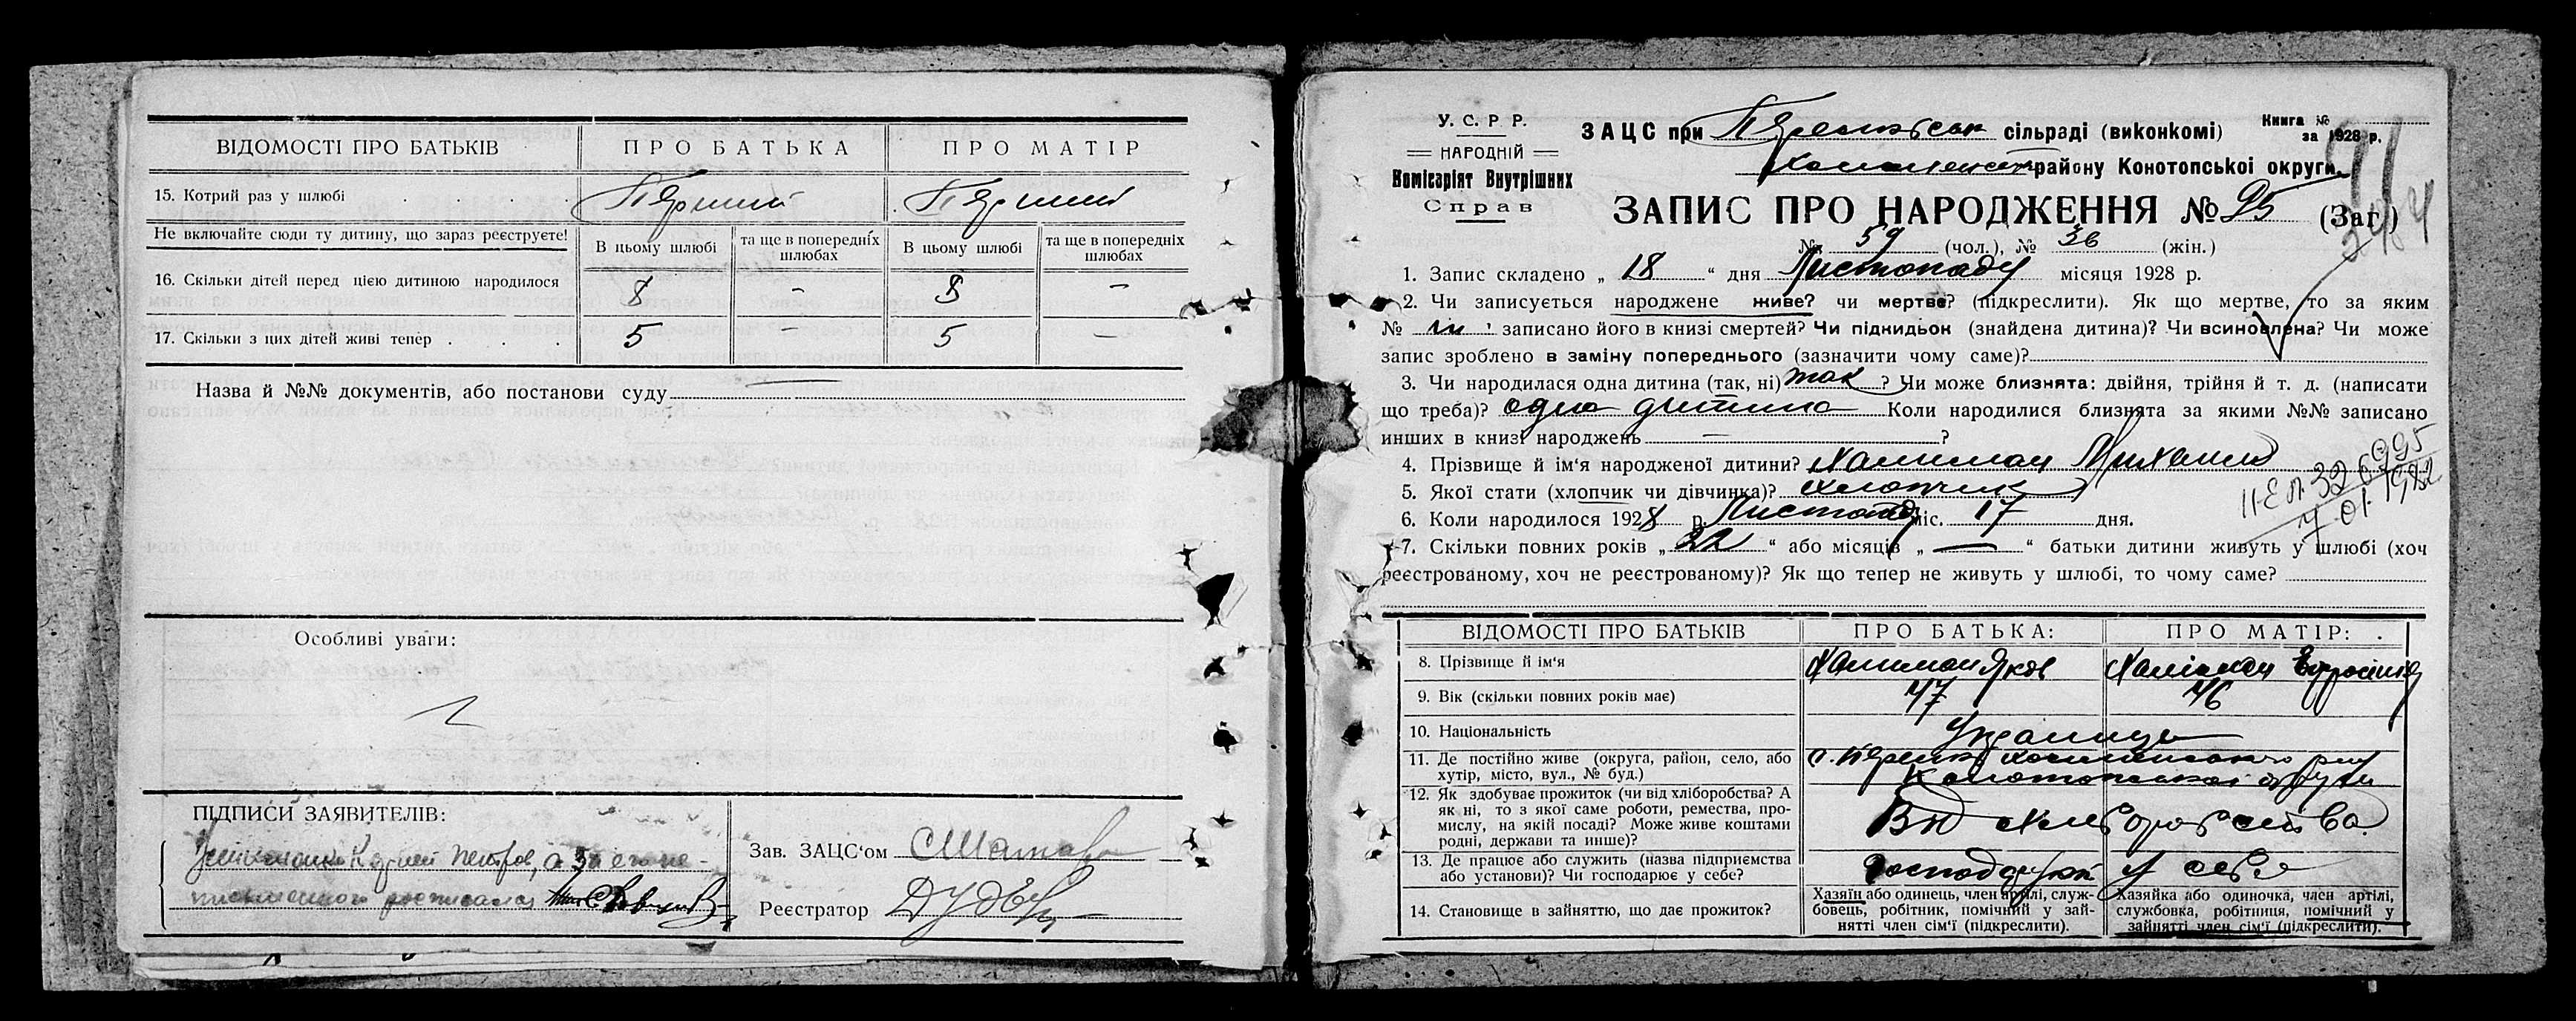 ВІДОМОСТІ ПРО БАТЬКІВ
ПРО БАТЬКА
ПРО МАТІР
15. Котрий раз у шлюбі
Перший
Перший
Не включайте сюди ту дитину, що зараз реєструєте!
В цьому шлюбі
та ще в попередніх шлюбах
В цьому шлюбі
та ще в попередніх шлюбах
16. Скільки дітей перед цією дитиною народилося
8 - 8 -
17. Скільки з цих дітей живі тепер
5 - 5 -
Назва й №№ документів, або постанови суду
Особливі уваги:
ПІДПИСИ ЗАЯВИТЕЛІВ:
Зав. ЗАЦС'ом
Реєстратор
У. С. Р. Р.
НАРОДНІЙ
Комісаріят Внутрішних
Справ
ЗАЦС при сільраді (виконкомі)
Книга №
за 1928 р.
району Конотопської округи.
ЗАПИС ПРО НАРОДЖЕННЯ № 95 (Заг.)
№ 59 (чол.), № 36 (жін.)
1. Запис складено „ 18 “ дня Листопаду місяця 1928 р.
2. Чи записується народжене живе? чи мертве? (підкреслити). Як що мертве, то за яким
№ записано його в книзі смертей? Чи підкидьок (знайдена дитина)? Чи всиновлена? Чи може
запис зроблено в заміну попереднього (зазначити чому саме)?
3. Чи народилася одна дитина (так, ні) так ? Чи може близнята: двійня, трійня й т. д. (написати
що треба)? одна дитина Коли народилися близнята за якими №№ записано
инших в книзі народжень — ?
4. Прізвище й ім'я народженої дитини? Халиман Михаил
5. Якої стати (хлопчик чи дівчинка)? хлопчик
6. Коли народилося 1928 р. Листопад міс. 17 дня.
7. Скільки повних років „ 22 “ або місяців „ — “ батьки дитини живуть у шлюбі (хоч
реєстрованому, хоч не реєстрованому)? Як що тепер не живуть у шлюбі, то чому саме?
ВІДОМОСТІ ПРО БАТЬКІВ
ПРО БАТЬКА:
ПРО МАТІР:
8. Прізвище й ім'я
Халиман Яков
9. Вік (скільки повних років має)
47
46
10. Національність
Українці
11. Де постійно живе (округа, район, село, або
хутір, місто, вул., № буд.)
Конотопської округи
12. Як здобуває прожиток (чи від хліборобства? А
як ні, то з якої саме роботи, ремества, про-
мислу, на якій посаді? Може живе коштами
родні, держави та инше)?
Від хліборобства.
13. Де працює або служить (назва підприємства
або установи)? Чи господарює у себе?
у себе
14. Становище в зайняттю, що дає прожиток?
Хазяїн або одинець, член артілі, служ-
бовець, робітник, помічний у зай-
нятті член сім'ї (підкреслити).
Хазяйка або одиночка, член артілі,
службовка, робітниця, помічний у
зайнятті член сім'ї (підкреслити).